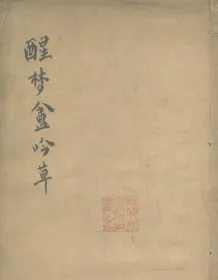 醒梦盦吟草